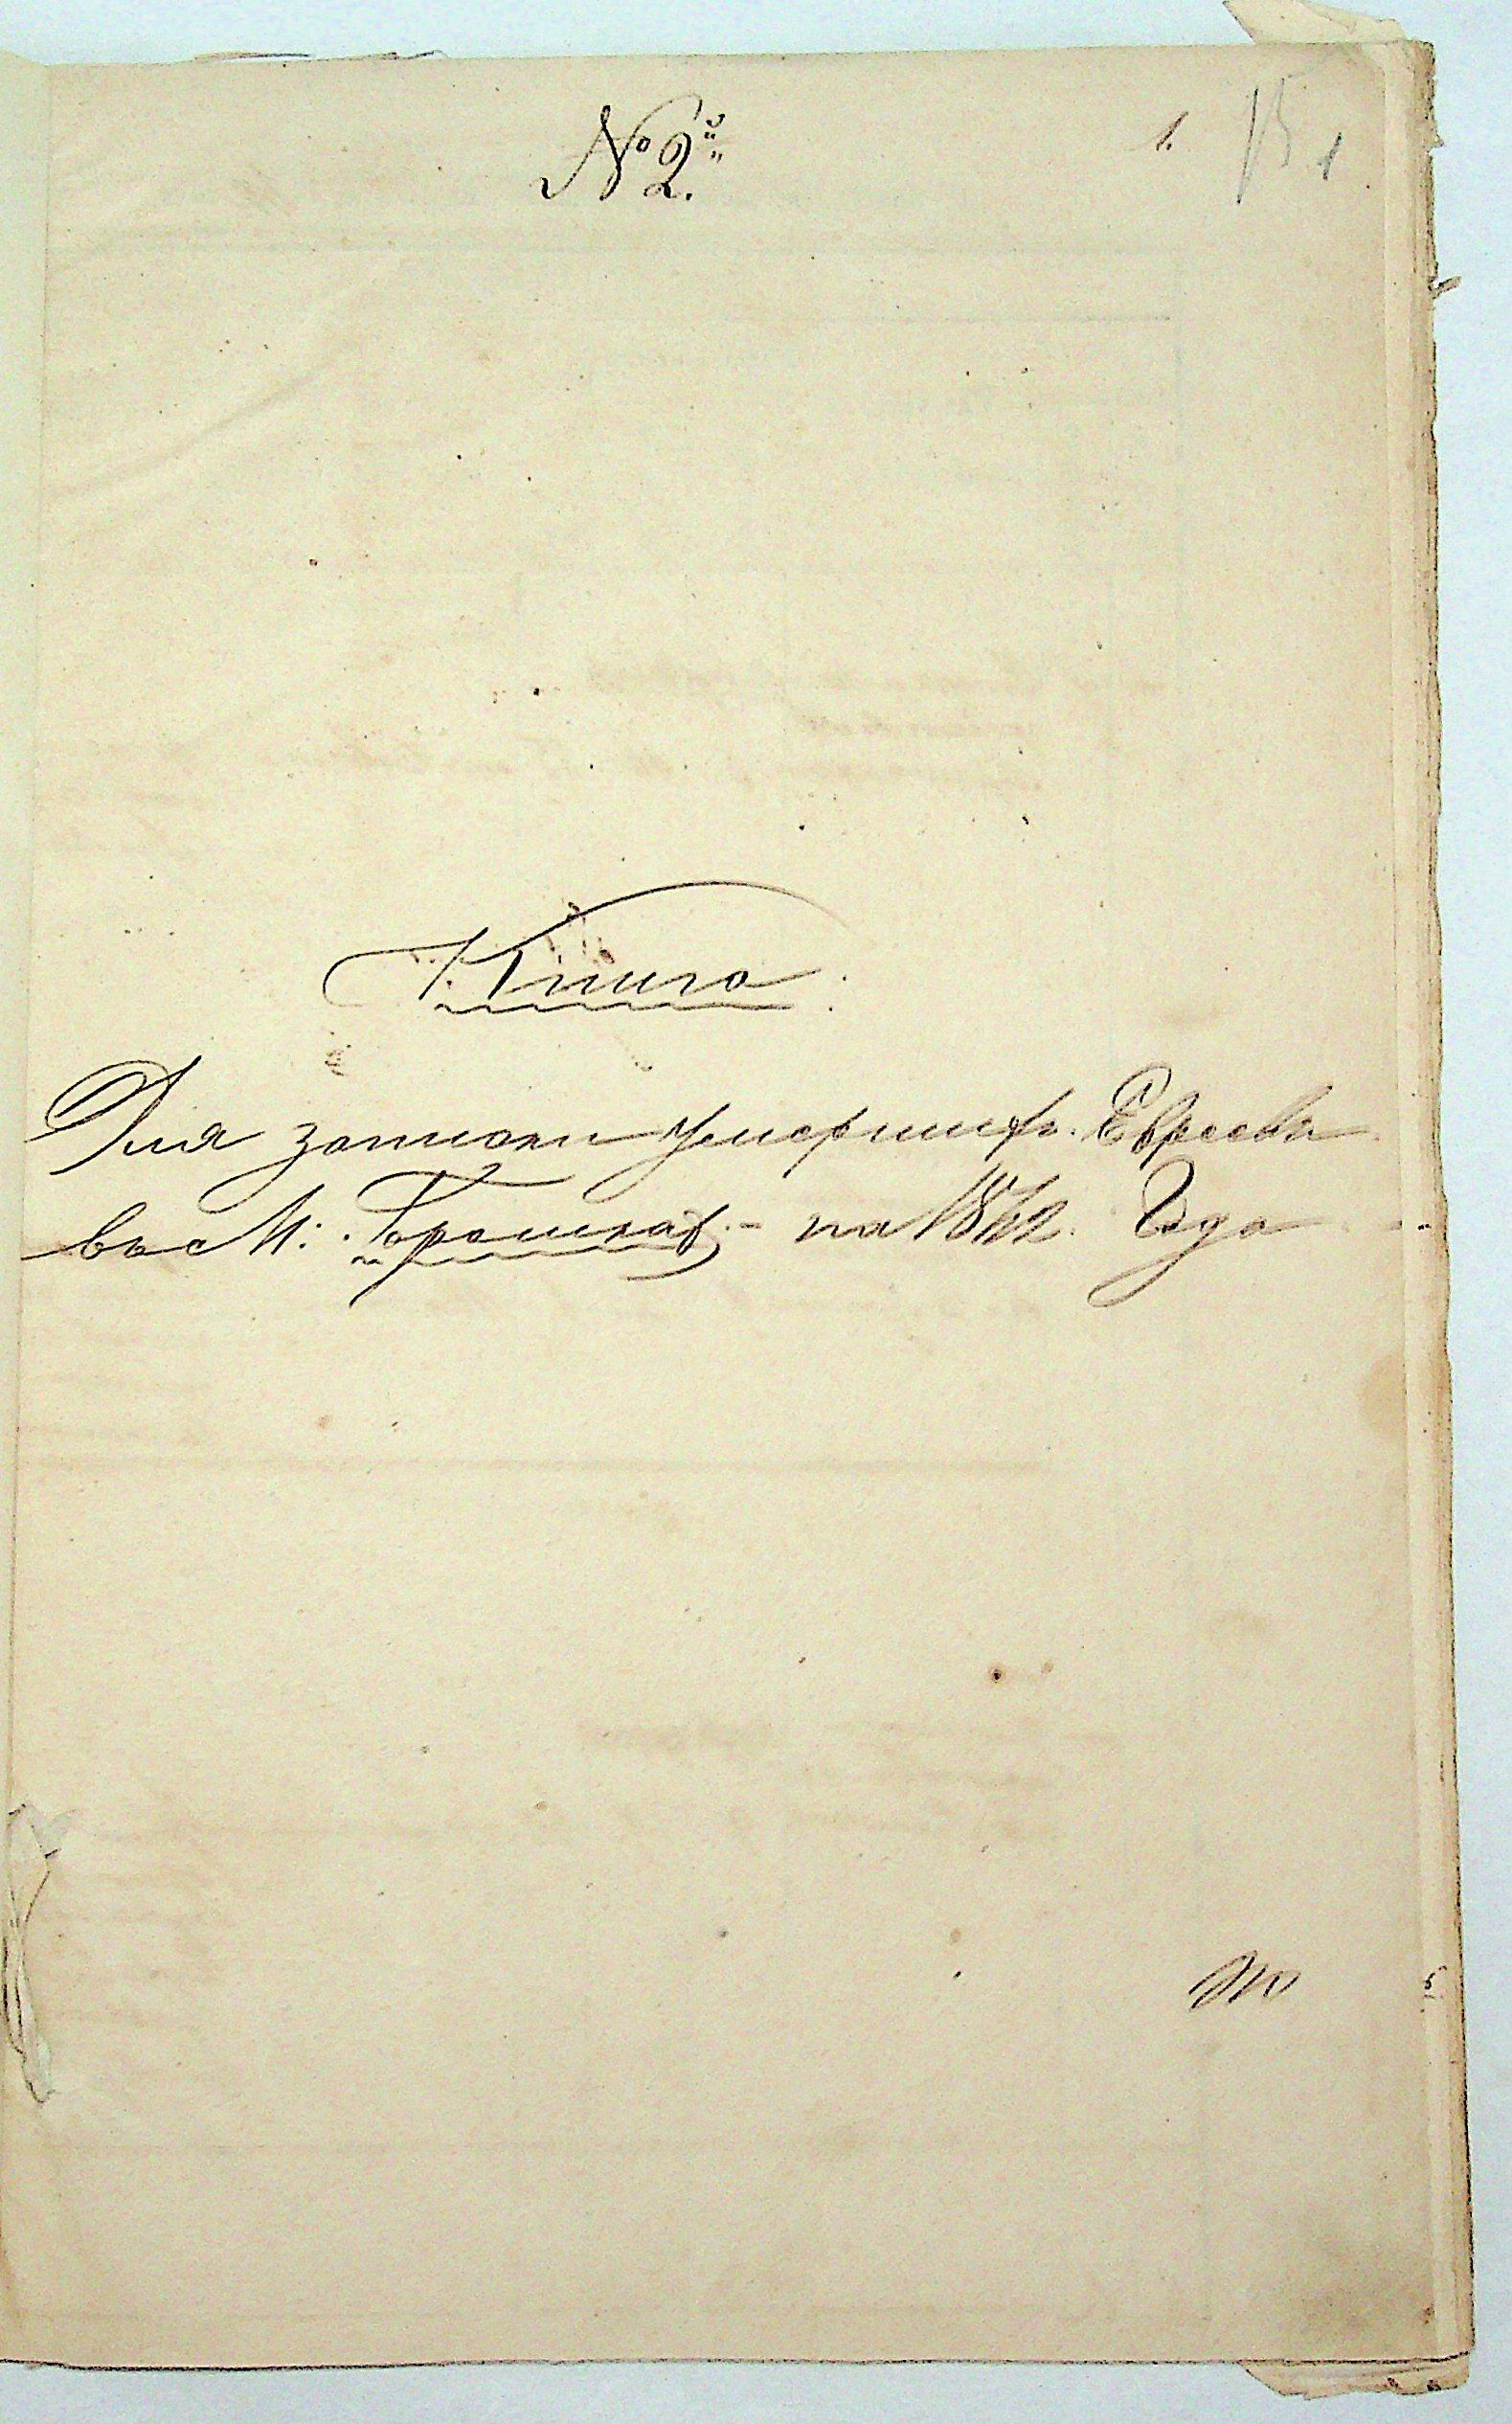 № 2.й
1. 1
Книга
Для записки умершихъ Евреевъ
въ М: Горошкахъ - на 1862 Года